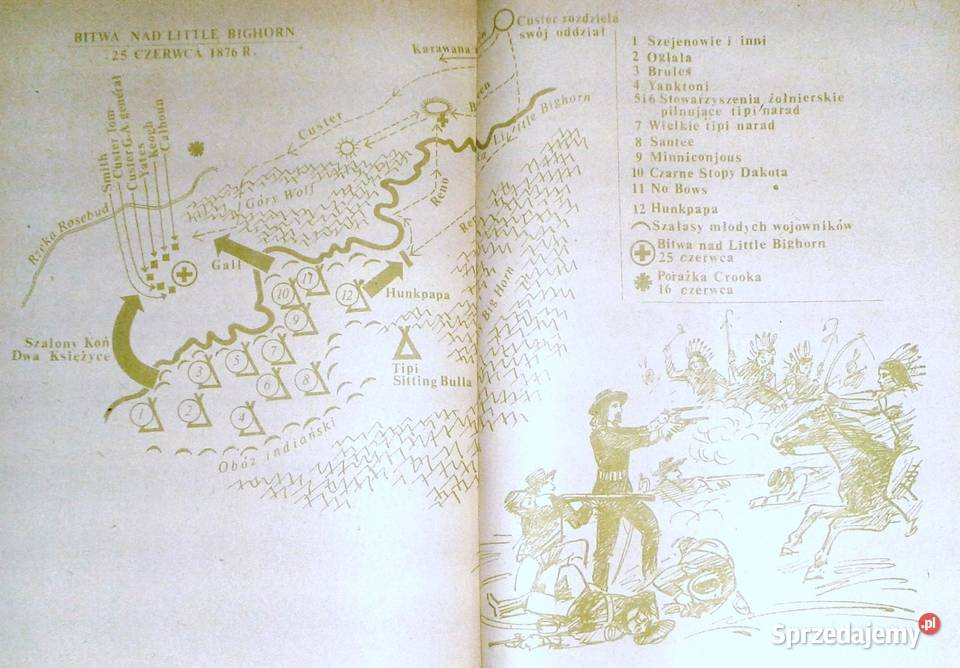 BITWA NAD LITTLE BIGHORN
25 CZERWCA 1876 R.
Custer rozdziela
swój oddział
Karawana
Custer
Little Bighorn
Reno
Smith
Custer Tom
Custer G.A. generał
Yates
Keogh
Calhoun
Rzeka Rosebud
Góry Wolf
Gall
Big Horn
Hunkpapa
Szalony Koń
Dwa Księżyce
Tipi
Sitting Bulla
1
2
3
4
5
6
7
8
9
10
11
12
Obóz indiański
1 Szejenowie i inni
2 Oglala
3 Brules
4 Yanktoni
5i6 Stowarzyszenia żołnierskie
pilnujące tipi narad
7 Wielkie tipi narad
8 Santee
9 Minniconjous
10 Czarne Stopy Dakota
11 No Bows
12 Hunkpapa
Szałasy młodych wojowników
Bitwa nad Little Bighorn
25 czerwca
Porażka Crooka
16 czerwca
Sprzedajemy.pl